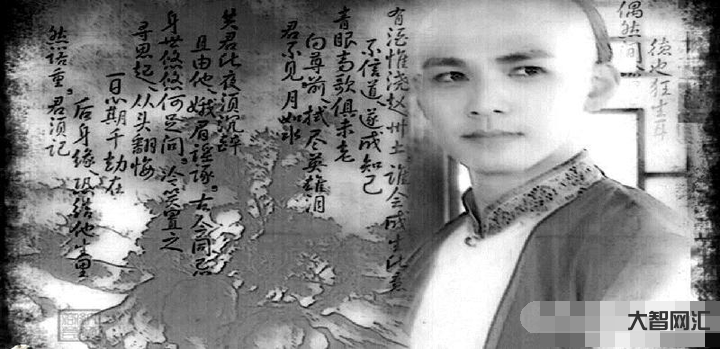 偶然间
德也狂生耳
有酒惟浇赵州土，谁会成生此意
不信道、遂成知己
青眼高歌俱未老
向尊前、拭尽英雄泪
君不见，月如水
共君此夜须沉醉
且由他、娥眉谣诼，古今同忌
身世悠悠何足问，冷笑置之
寻思起、从头翻悔
一日心期千劫在
后身缘、恐结他生里
然诺重，君须记
大智网汇